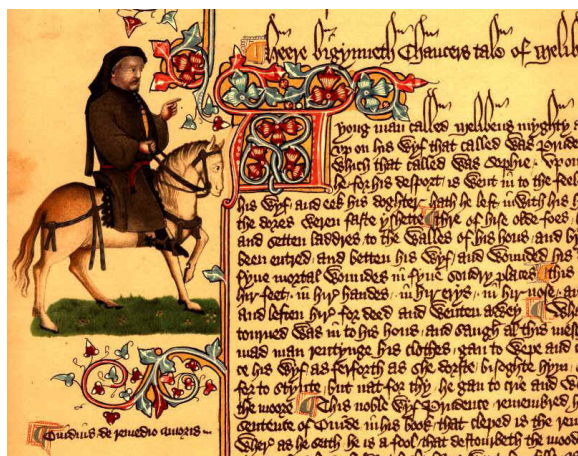 Heere bigynneth Chaucers tale of Melib
A yong man called Melibeus myghty
up on his wyf that called was Prude
which that called was Sophie Upon
he for his desport is went in to the feel
his wyf and eek his doghter hath he left inwith his h
the dores weren faste yshette thre of hise olde foes
and setten laddres to the walles of his hous and by
been entred and betten his wyf and wounded his
fyue mortal woundes in fyue sondry places this
hir feet in hir handes in hir erys in hir nose a
and leften hir for deed and wenten awey Whe
tourned was in to his hous and saugh al this mes
mad man rentynge his clothes gan to wepe and c
ce his wyf as ferforth as she dorste bisoghte hym
for to stynte but nat for thy he gan to crie and we
the moore This noble wyf Prudence remembred h
sentence of Ouide in his book that cleped is the rem
wher as he seith he is a fool that destourbeth the mood
Ouidius de remedio amoris